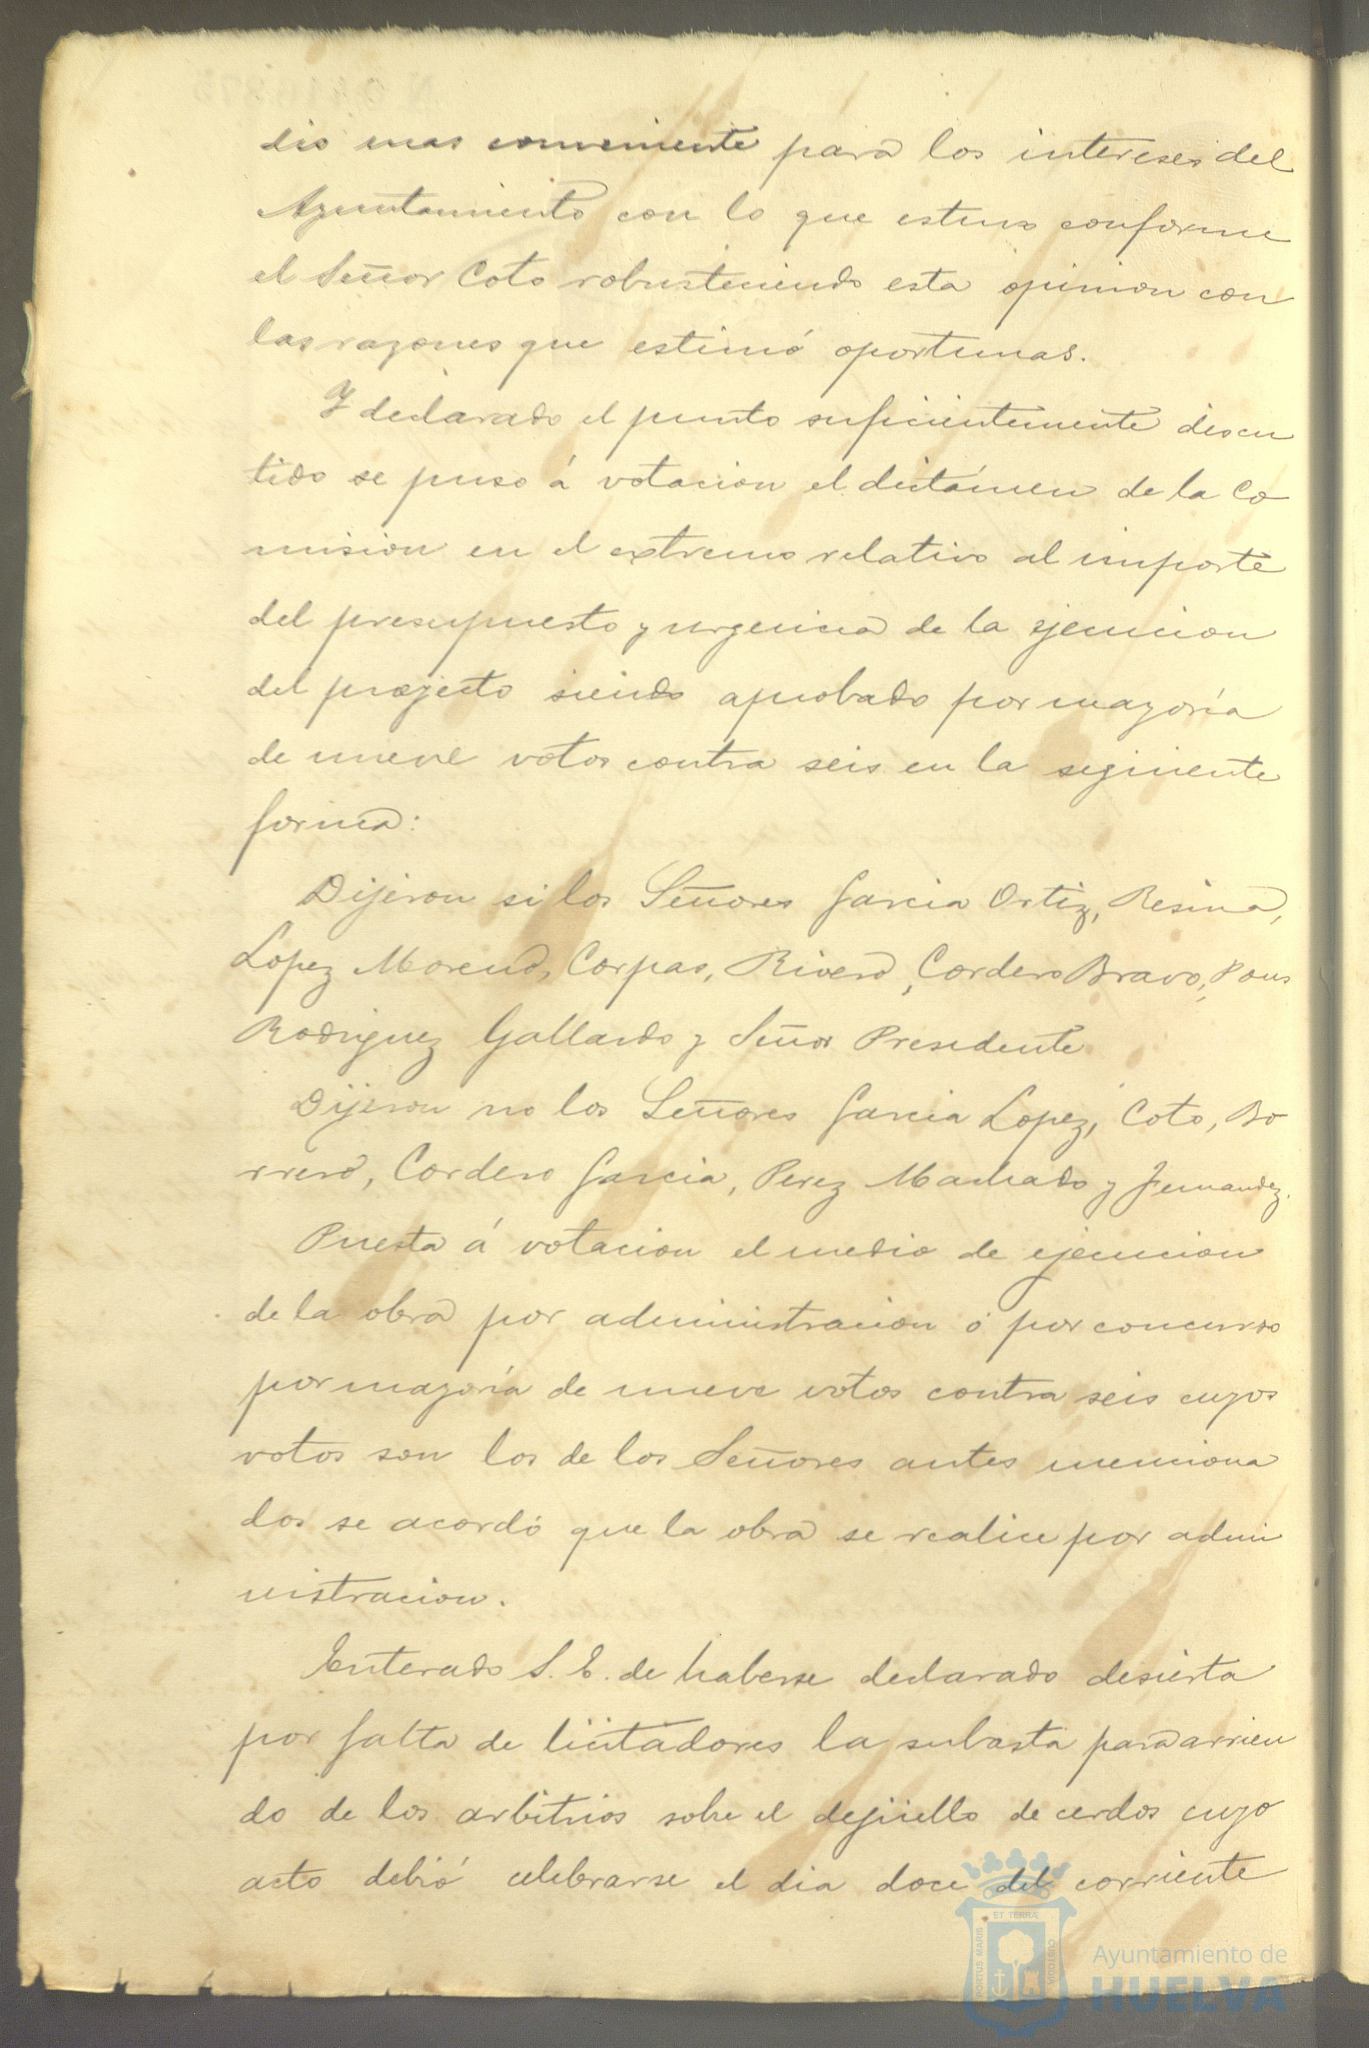 dio mas conveniente para los intereses del
Ayuntamiento con lo que estuvo conforme
el Señor Coto robusteciendo esta opinion con
las razones que estimó oportunas.
Y declarado el punto suficientemente discu
tido se puso á votacion el dictámen de la Co
mision en el extremo relativo al importe
del presupuesto y urgencia de la ejecucion
del proyecto siendo aprobado por mayoría
de nueve votos contra seis en la siguiente
forma:
Dijeron si los Señores Garcia Ortiz, Resina,
Lopez Moreno, Corpas, Rivero, Cordero Bravo, Pons
Rodriguez Gallardo y Señor Presidente
Dijeron no los Señores Garcia Lopez, Coto, Bo
rrero, Cordero Garcia, Perez Machado y Fernandez.
Puesta á votacion el medio de ejecucion
de la obra por administracion ó por concurso
por mayoría de nueve votos contra seis cuyos
votos son los de los Señores antes menciona
dos se acordó que la obra se realice por admi
nistracion.
Enterado S. E. de haberse declarado desierta
por falta de licitadores la subasta para arrien
do de los arbitrios sobre el degüello de cerdos cuyo
acto debió celebrarse el dia doce del corriente
PORTUS MARIS
ET TERRÆ
CUSTODIA
Ayuntamiento de
HUELVA